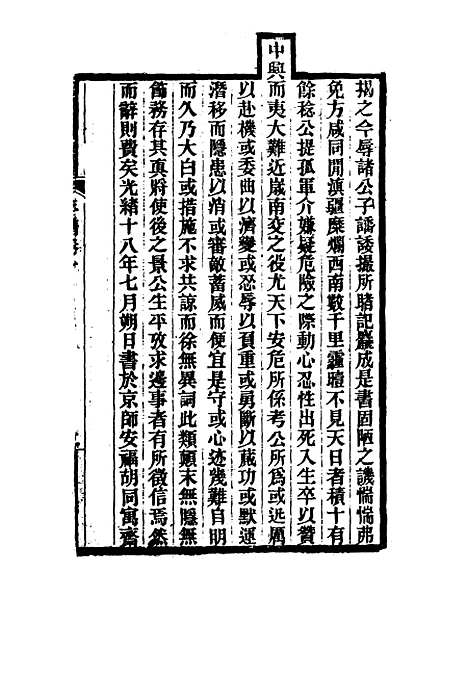 揭之今辱諸公子譒諉撮所睹記纂成是書固陋之譏惴惴弗
免方咸同閒滇疆糜爛西南數千里靉曀不見天日者積十有
餘稔公提孤軍介嫌疑危險之際動心忍性出死入生卒以贊
中興而夷大難近歲南交之役尤天下安危所係考公所爲或远
以赴機或委曲以濟變或忍辱以負重或勇斷以蕆功或默運
潛移而隱患以消或審敵蓄威而便宜是守或心述幾難自明
而久乃大白或措施不求共諒而徐無異詞此類顚末無隱無
飾務存其真將使後之景公生平攷求邊事者有所徵信焉然
而辭則費矣光緒十八年七月朔日書於京師安福胡同寓齋